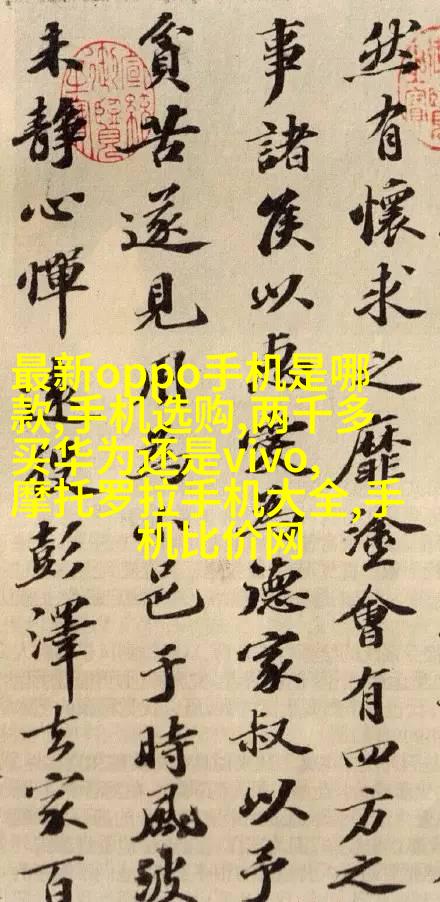 然有懷求之靡塗會有四方之
事諸侯以惠愛為德家叔以予
貧苦遂見用為小邑于時風波
未靜心憚遠役彭澤去家百
最新oppo手机是哪
款,手机选购,两千多
买华为还是vivo,
摩托罗拉手机大全,手
机比价网